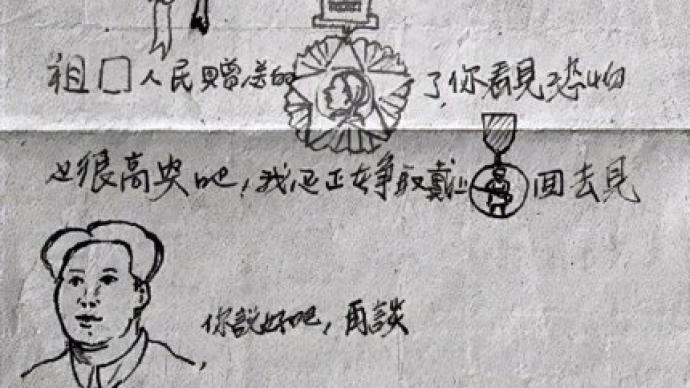 祖囗人民贈送的 了，你看見了恐怕
也很高央吧，我还正在争取戴上 回去見
你說好吧，再談